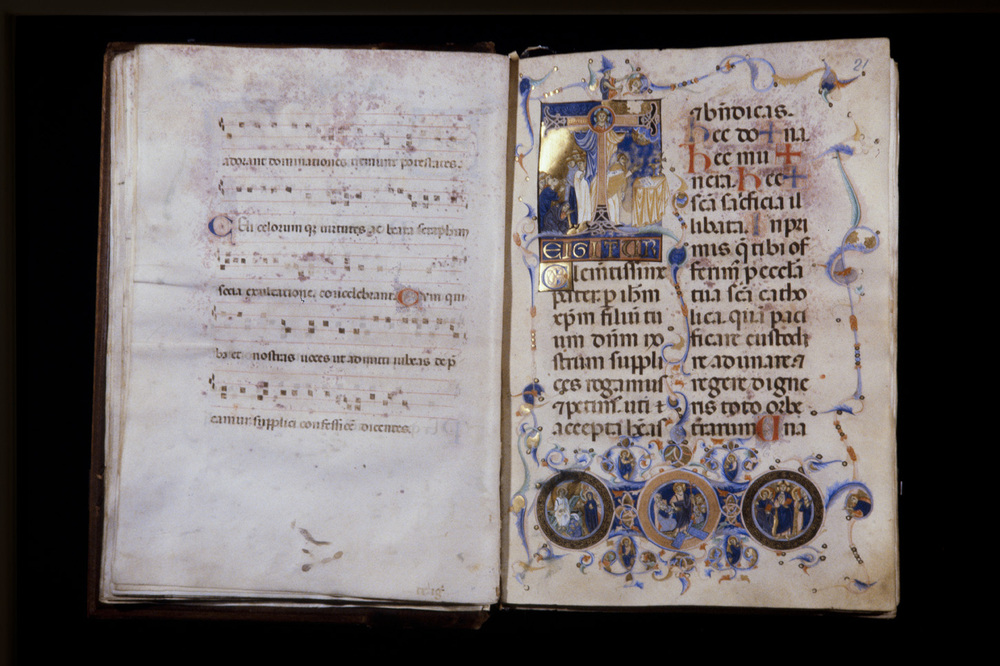 adorant dominationes tremunt potestates.
Celi celorum qꝫ uirtutes ac beata seraphim
socia exultatione. concelebrant. Cum qui
bꝫ et nostras uoces ut admitti iubeas dep̄
camur supplici confessiōe dicentes.
21
EIGITUR
Clementissime
pater. p ihm̄
xp̄m filiū tu
um dn̄m no
strum suppli
ces rogamus
⁊ petim᷒. uti
accepta heas
⁊ bn̄dicas.
hec do + na
hec mu +
nera. hec +
scā sacrificia il
libata. In pri
mis q̄ tibi of
ferim᷒ p eccl̄a
tua scā catho
lica. quā paci
ficare custodi
re adunare ⁊
regere digne
ris toto orbe
t̄rarum Una